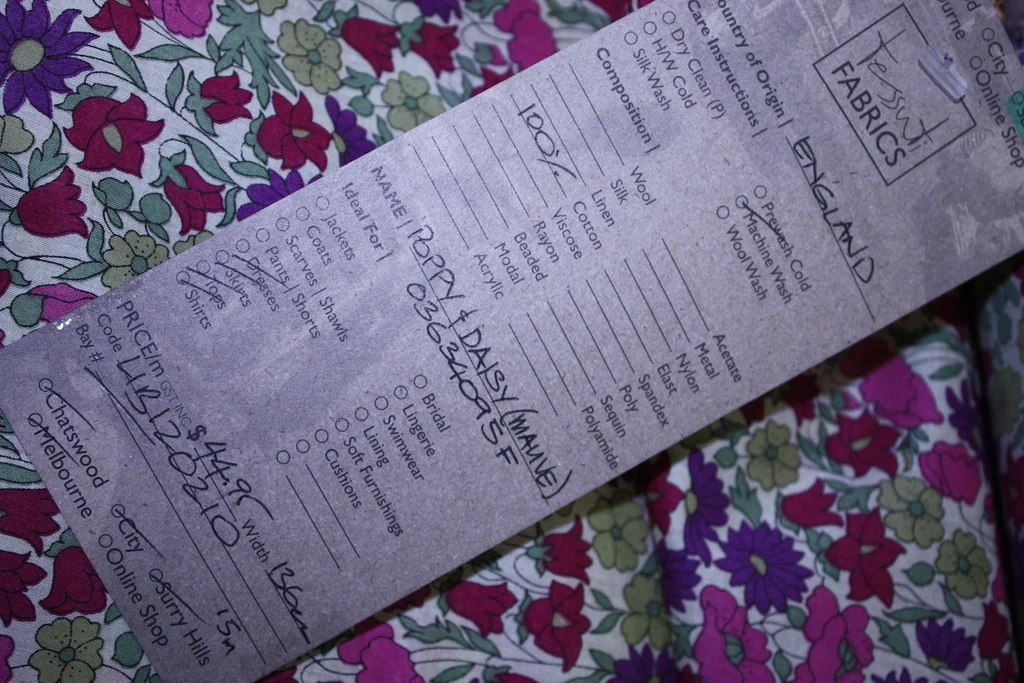 Tessuti
FABRICS
ountry of Origin | ENGLAND
Care Instructions |
Dry Clean (P)
H/W Cold
Silk Wash
Prewash Cold
Machine Wash
Wool Wash
Composition |
Wool
Silk
Linen
100% Cotton
Viscose
Rayon
Beaded
Modal
Acrylic
Acetate
Metal
Nylon
Elast
Spandex
Poly
Sequin
Polyamide
NAME | POPPY & DAISY (MAUVE)
03634095 F
Ideal For |
Jackets
Coats
Scarves | Shawls
Pants | Shorts
Dresses
Skirts
Tops
Shirts
Bridal
Lingerie
Swimwear
Lining
Soft Furnishings
Cushions
PRICE/m GST INC $44.95 Width 136cm
Code LIB120210
Bay # 15m
Chatswood
Melbourne
City
Online Shop
Surry Hills
ourne
City
Online Shop